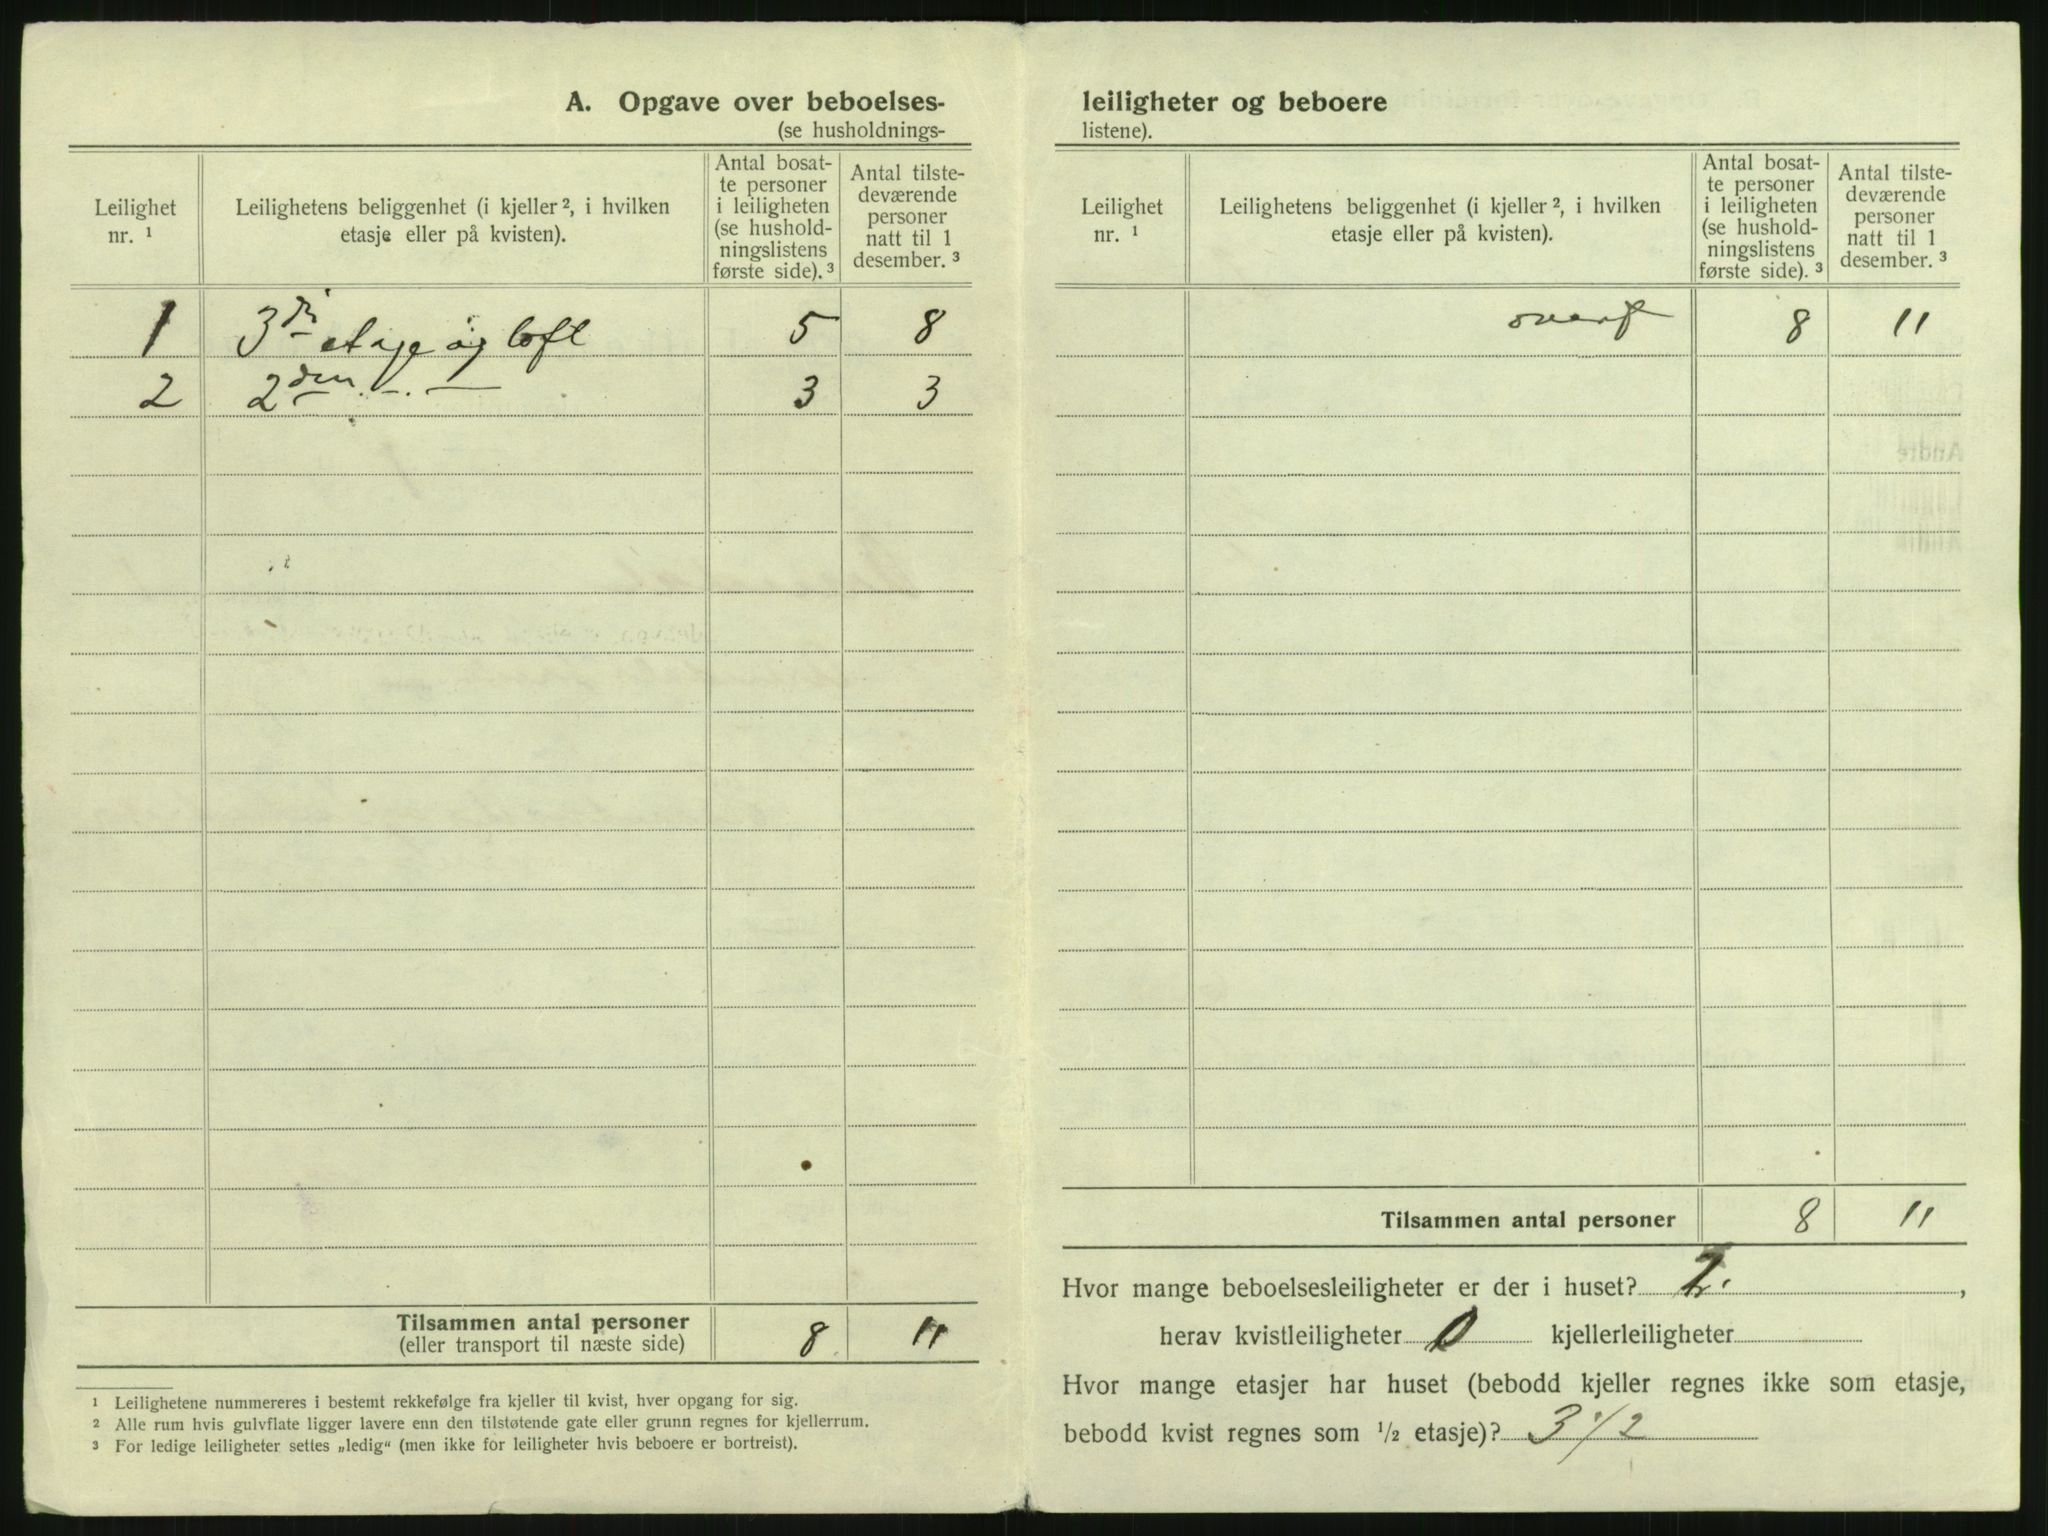 A. Opgave over beboelses-
(se husholdnings-
Leilighet nr. ¹
Leilighetens beliggenhet (i kjeller ², i hvilken etasje eller på kvisten).
Antal bosat-
te personer
i leiligheten
(se hushold-
ningslistens
første side). ³
Antal tilste-
deværende
personer
natt til 1
desember. ³
1 3di etage og loft 5 8
2 2den -.- — 3 3
Tilsammen antal personer 8 11
(eller transport til næste side)
¹ Leilighetene nummereres i bestemt rekkefølge fra kjeller til kvist, hver opgang for sig.
² Alle rum hvis gulvflate ligger lavere enn den tilstøtende gate eller grunn regnes for kjellerrum.
³ For ledige leiligheter settes „ledig“ (men ikke for leiligheter hvis beboere er bortreist).
leiligheter og beboere
listene).
Leilighet nr. ¹
Leilighetens beliggenhet (i kjeller ², i hvilken etasje eller på kvisten).
Antal bosat-
te personer
i leiligheten
(se hushold-
ningslistens
første side). ³
Antal tilste-
deværende
personer
natt til 1
desember. ³
overf 8 11
Tilsammen antal personer 8 11
Hvor mange beboelsesleiligheter er der i huset? 2. ,
herav kvistleiligheter 0 kjellerleiligheter
Hvor mange etasjer har huset (bebodd kjeller regnes ikke som etasje,
bebodd kvist regnes som ½ etasje)? 3 1/2